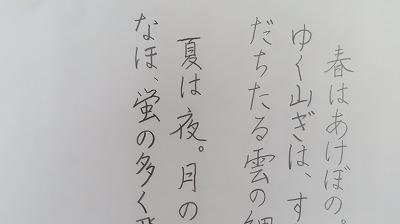 春はあけぼの。
ゆく山ぎは、す
だちたる雲の細
夏は夜。月の
なほ、蛍の多く飛